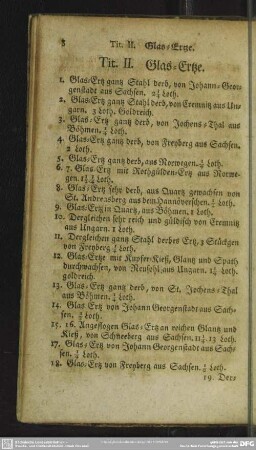 8 Tit. II. Glas-Ertze.
Tit. II. Glas-Ertze.
1. Glas-Ertz gantz Stahl derb, von Johann-Geor-
genstadt aus Sachsen. Loth.
2. Glas-Ertz gantz Stahl derb, von Cremnitz aus Un-
garn. 3 Loth. Goldreich.
3. Glas-Ertz gantz derb, von Jochens-Thal aus
Böhmen. Loth.
4. Glas-Ertz gantz derb, von Freyberg aus Sachsen.
2 Loth.
5. Glas-Ertz gantz derb, aus Norwegen. Loth.
6. 7. Glas-Ertz mit Rothgülden-Ertz aus Norwe-
gen. Loth.
8. Glas-Ertz sehr derb, aus Quartz gewachsen von
St. Andreasberg aus dem Hannöverschen. Loth.
9. Glas-Ertz in Quartz, aus Böhmen, 1 Loth.
10. Dergleichen sehr reich und güldisch von Cremnitz
aus Ungarn. 1 Loth.
11. Dergleichen gantz Stahl derbes Ertz, 3 Stückgen
von Freyberg Loth.
12. Glas-Ertze mit Kupfer-Kieß, Glantz und Spath
durchwachsen, von Neusohl aus Ungarn. Loth.
goldreich.
13. Glas-Ertz gantz derb, von St. Jochens-Thal
aus Böhmen. Loth.
14. Glas-Ertz von Johann Georgenstadt aus Sach-
sen. Loth.
15. 16. Angeflogen Glas-Ertz an reichen Glantz und
Kieß, von Schneeberg aus Sachsen. 13 Loth.
17. Glas-Ertz von Johann Georgenstadt aus Sach-
sen. Loth.
18. Glas-Ertz von Freyberg aus Sachsen. Loth.
19. Der-